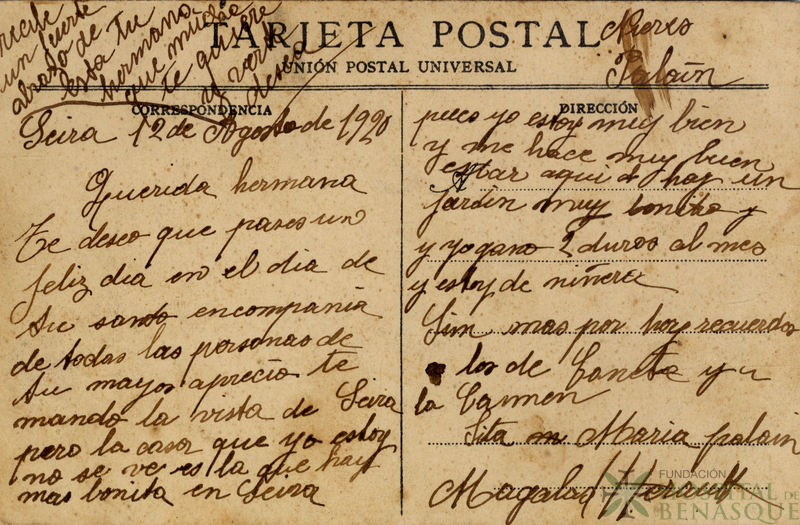 TARJETA POSTAL
UNIÓN POSTAL UNIVERSAL
CORRESPONDENCIA
Seira 12 de Agosto de 1920
Querida hermana
Te deseo que pases un
feliz dia en el dia de
tu santo en compania
de todas las personas de
tu mayor aprecio te
mando la vista de Seira
pero la casa que yo estoy
no se ve es la que hay
mas bonita en Seira
DIRECCIÓN
pues yo estoy muy bien
y me hace muy buen
estar aqui hay un
Jardin muy bonito y
y yo gano 2 duros al mes
y estoy de niñera
Sin mas por hoy recuerdos
los de Concta y a
la Carmen
Sita Maria palain
recibe
un fuerte
abrazo de
esta tu
hermana
que mucho
te quiere
y verte
desea
Palaín
FUNDACIÓN
HOSPITAL DE
BENASQUE